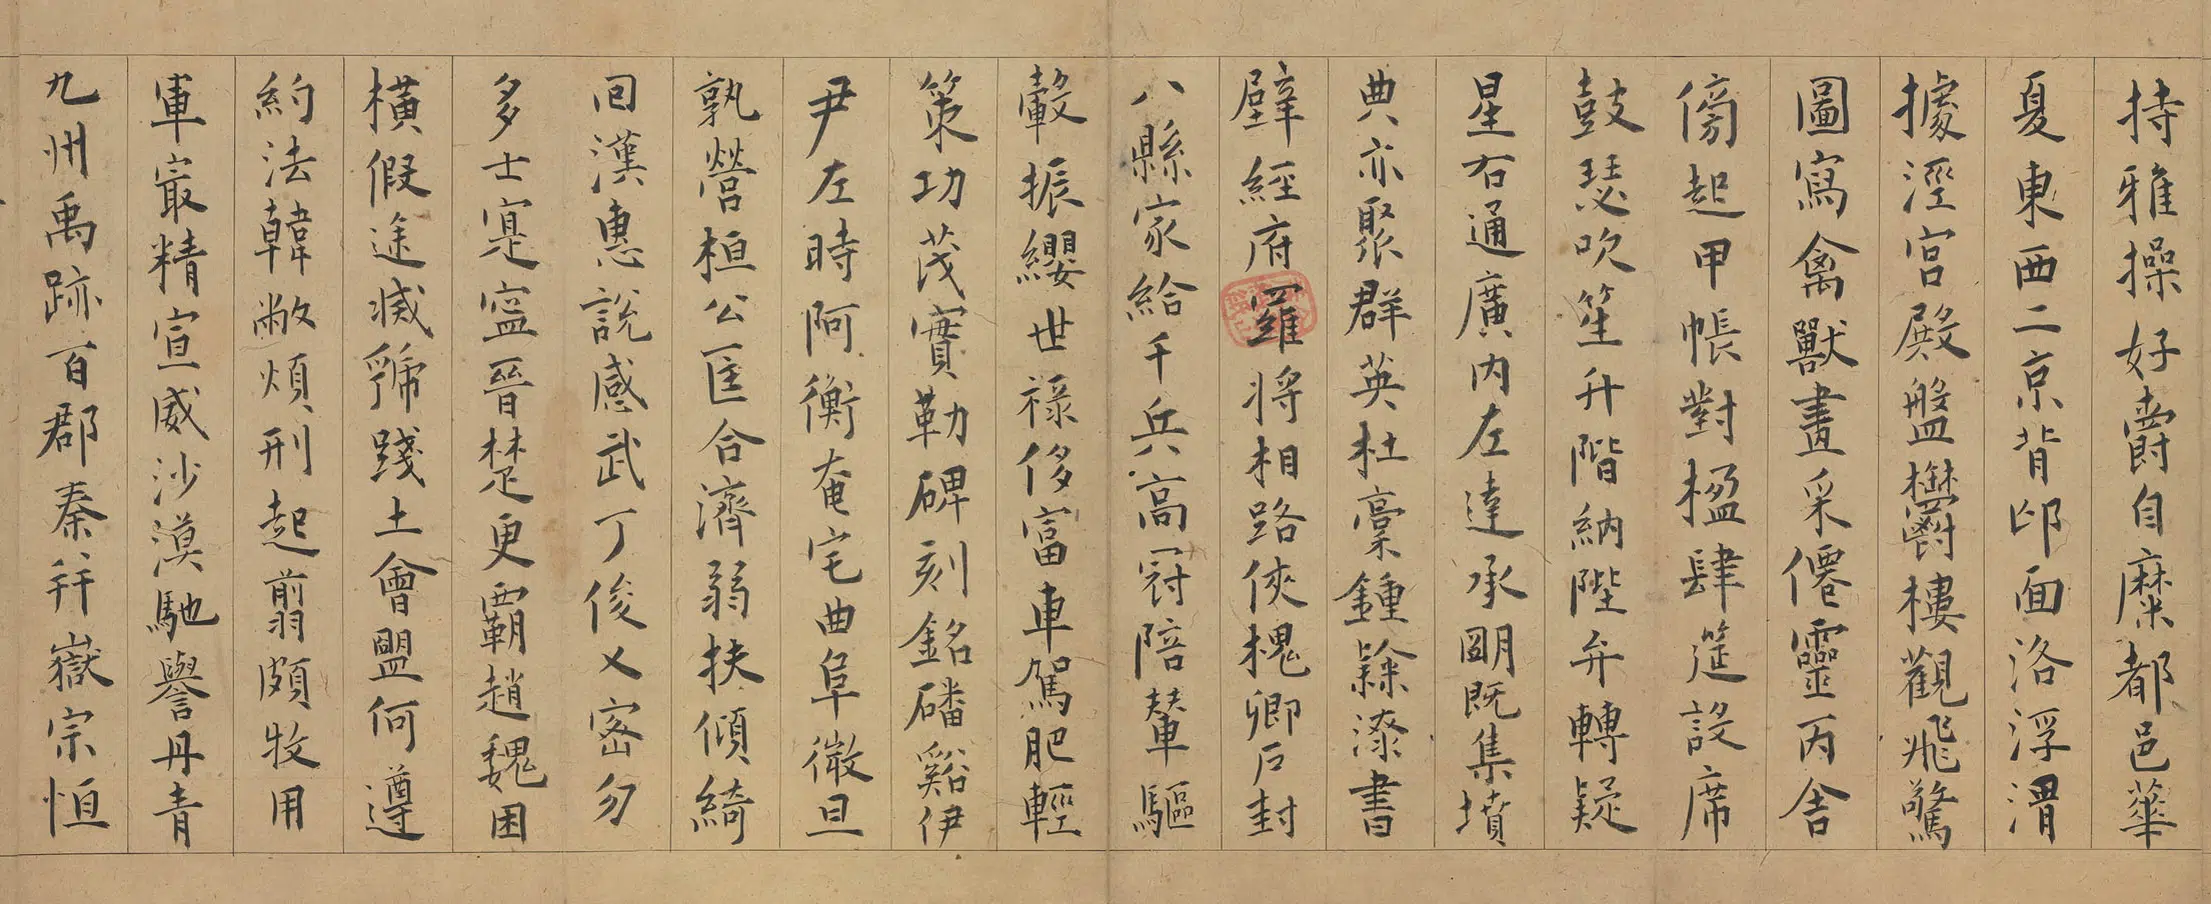 持雅操好爵自糜都邑華
夏東西二京背邙面洛浮渭
據涇宮殿盤鬱樓觀飛驚
圖寫禽獸畫采僊靈丙舍
傍起甲帳對楹肆筵設席
鼓瑟吹笙升階納陛弁轉疑
星右通廣内左達承明既集墳
典亦聚群英杜稾鍾隸漆書
壁經府羅將相路俠槐卿戶封
八縣家給千兵高冠陪輦驅
轂振纓世祿侈富車駕肥輕
策功茂實勒碑刻銘磻谿伊
尹左時阿衡奄宅曲阜微旦
孰營桓公匡合濟弱扶傾綺
回漢惠說感武丁俊乂密勿
多士寔寧晉楚更霸趙魏困
橫假途滅虢踐土會盟何遵
約法韓敝煩刑起翦頗牧用
軍最精宣威沙漠馳譽丹青
九州禹跡百郡秦并嶽宗恒